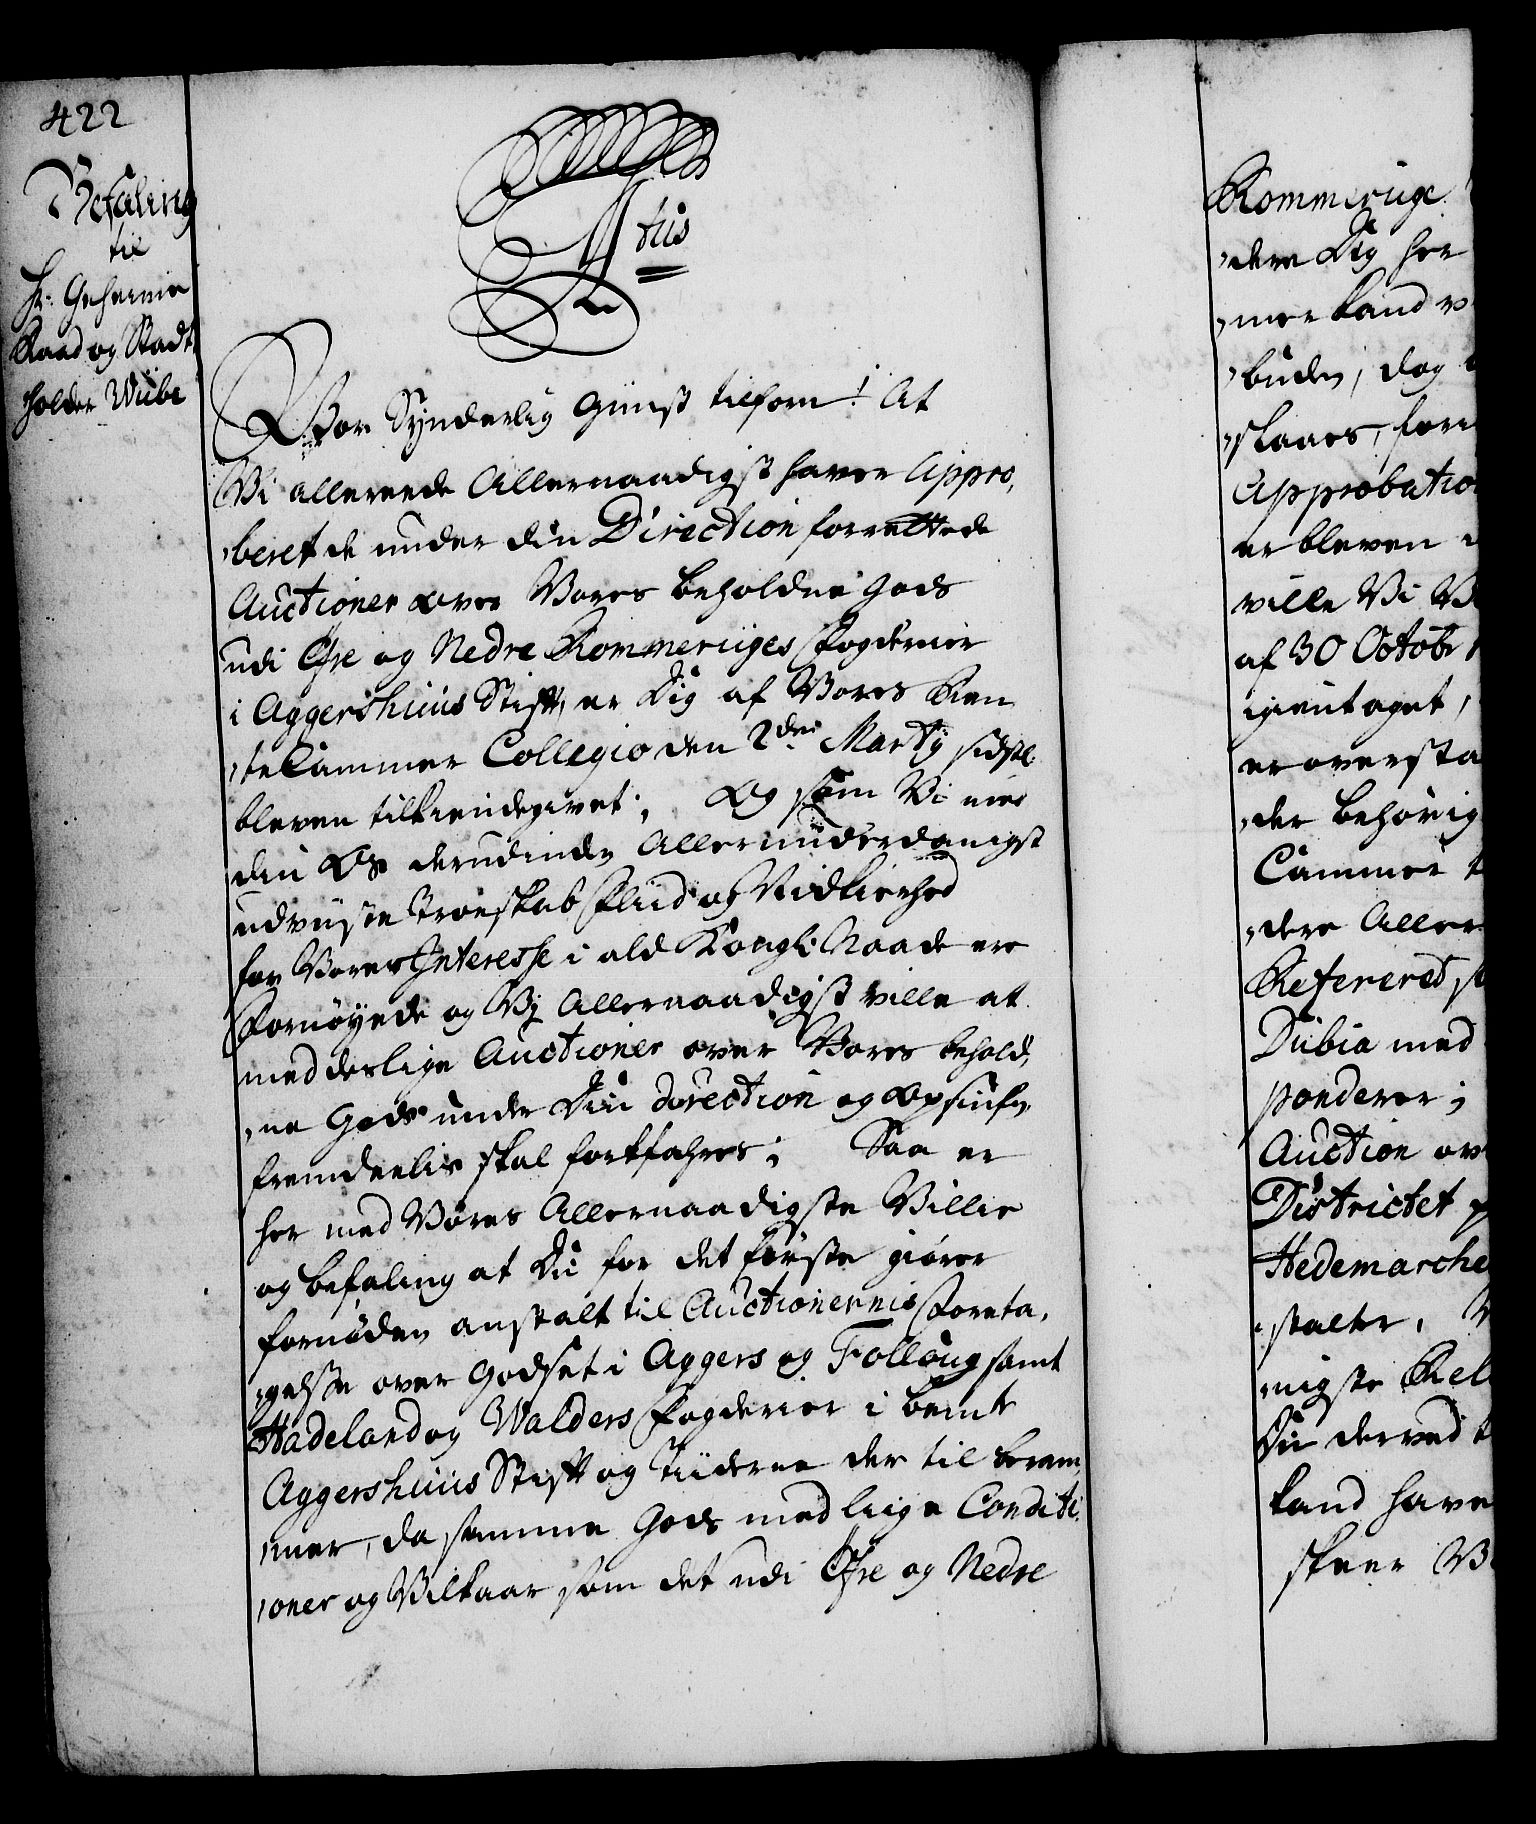 422
Befaling
til
Hr: Geheime
Raad og Stadt
holder Wibe
F4tus
Vor Synderlig Gunst tilforn! At
Vi allereede Allernaadigst haver Appro,
,beret de under din Direction forrettede
Auctioner over Vores beholdne Gods
udi Øfre og Nedre Rommeriiges Fogderier
i Aggershuus Stift, er Dig af Vores Ren
,te Cammer Collegio den 2den Martij sidstl:
bleven tilkiendegivet; Og som Vi med
din Os derudinden Allerunderdanigst
udviiste Troeskab Fliid og Nidkierhed
for Vores Interesse i ald Kongl: Naade ere
Fornøyede og Vj Allernaadigst ville at
med deslige Auctioner over Vores behold,
,ne Gods under Din Direction og Opsiufn
fremdeelis skal fortfahres; Saa er
her med Vores Allernaadigste Villie
og befaling at Du for det første giører
fornøden anstalt til Auctionernis Foreta,
,gelse over Godset i Aggers og Folloug samt
Hadeland og Walders Fogderier i bemte
Aggershuus Stift og Tiiderne der til beram,
,mer, da samme Gods med liige Conditi,
,oner og Vilkaar som det udi Øfre og Nedre
Rommeriige
,dere Dig her
,mer kand
,buden, dog
,slaaes, for
Approbatio
er bleven
ville Vi
af 30 Octobr
igientaget,
er oversta
,der behørig
Cammer
,dere Aller
Refereret,
Dubia med
ponderer;
Auction ov
Districtet
Hedemarche
,stalter,
,nigste Rel
Du derved
kand have
skeer